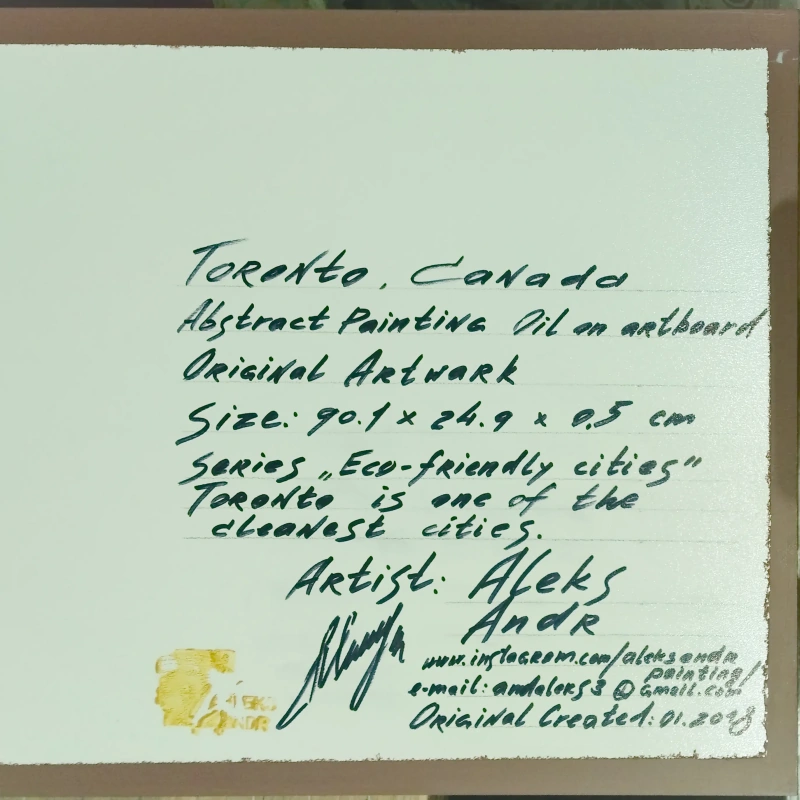 Toronto, Canada
Abstract Painting Oil on artboard
Original Artwork
Size: 90.1 x 24.9 x 0.5 cm
Series „Eco-friendly cities"
Toronto is one of the
cleanest cities.
Artist: Aleks
Andr
www.instagram.com/aleksandr
painting/
e-mail: andaleks3@gmail.com
Original Created: 01.2023
ALEKS
ANDR